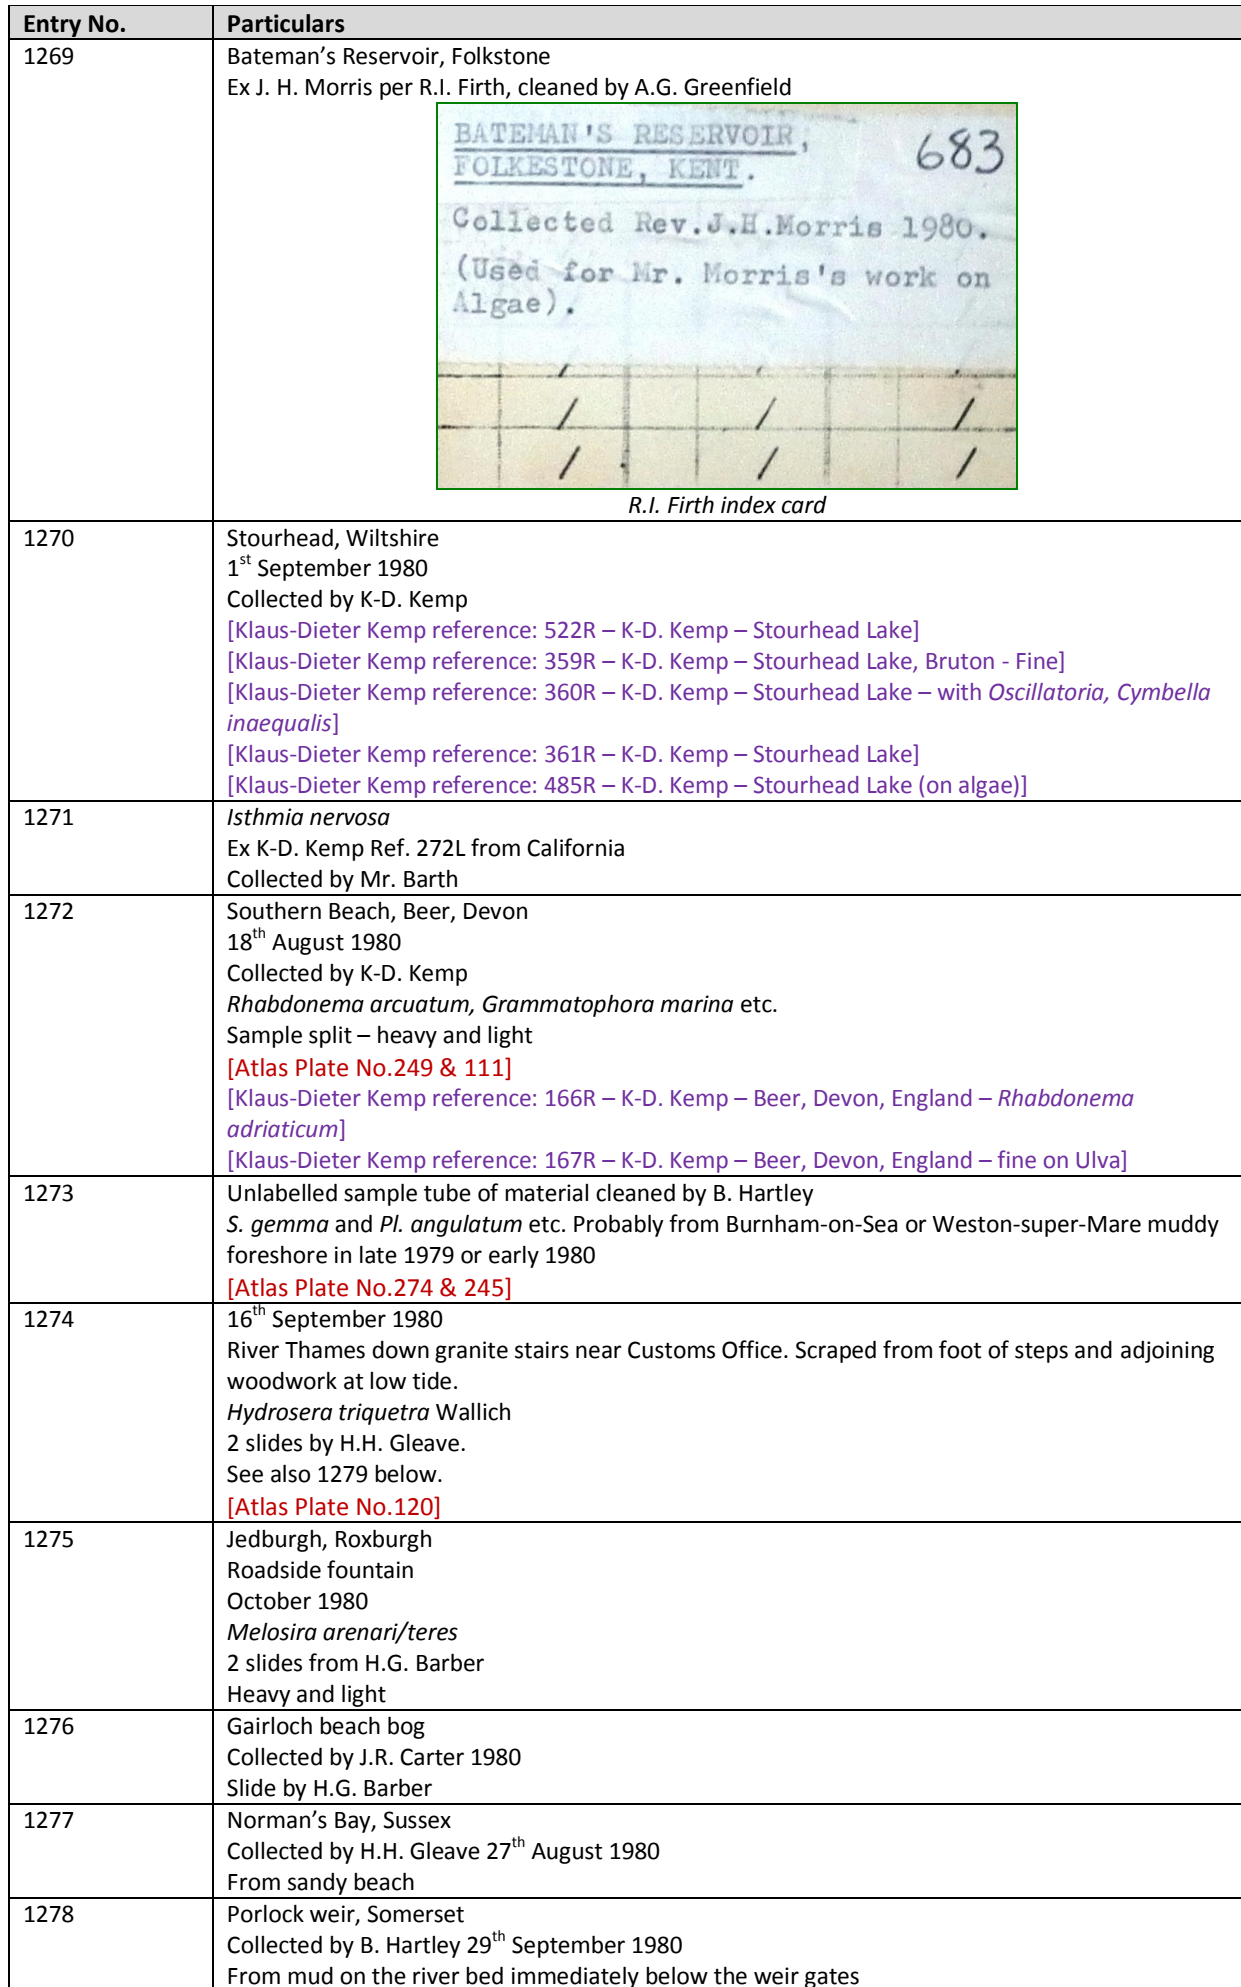 Entry No. Particulars
1269 Bateman’s Reservoir, Folkstone
Ex J. H. Morris per R.I. Firth, cleaned by A.G. Greenfield
BATEMAN'S RESERVOIR, 683
FOLKESTONE, KENT.
Collected Rev.J.H.Morris 1980.
(Used for Mr. Morris's work on
Algae).
R.I. Firth index card
1270 Stourhead, Wiltshire
1st September 1980
Collected by K-D. Kemp
[Klaus-Dieter Kemp reference: 522R – K-D. Kemp – Stourhead Lake]
[Klaus-Dieter Kemp reference: 359R – K-D. Kemp – Stourhead Lake, Bruton - Fine]
[Klaus-Dieter Kemp reference: 360R – K-D. Kemp – Stourhead Lake – with Oscillatoria, Cymbella
inaequalis]
[Klaus-Dieter Kemp reference: 361R – K-D. Kemp – Stourhead Lake]
[Klaus-Dieter Kemp reference: 485R – K-D. Kemp – Stourhead Lake (on algae)]
1271 Isthmia nervosa
Ex K-D. Kemp Ref. 272L from California
Collected by Mr. Barth
1272 Southern Beach, Beer, Devon
18th August 1980
Collected by K-D. Kemp
Rhabdonema arcuatum, Grammatophora marina etc.
Sample split – heavy and light
[Atlas Plate No.249 & 111]
[Klaus-Dieter Kemp reference: 166R – K-D. Kemp – Beer, Devon, England – Rhabdonema
adriaticum]
[Klaus-Dieter Kemp reference: 167R – K-D. Kemp – Beer, Devon, England – fine on Ulva]
1273 Unlabelled sample tube of material cleaned by B. Hartley
S. gemma and Pl. angulatum etc. Probably from Burnham-on-Sea or Weston-super-Mare muddy
foreshore in late 1979 or early 1980
[Atlas Plate No.274 & 245]
1274 16th September 1980
River Thames down granite stairs near Customs Office. Scraped from foot of steps and adjoining
woodwork at low tide.
Hydrosera triquetra Wallich
2 slides by H.H. Gleave.
See also 1279 below.
[Atlas Plate No.120]
1275 Jedburgh, Roxburgh
Roadside fountain
October 1980
Melosira arenari/teres
2 slides from H.G. Barber
Heavy and light
1276 Gairloch beach bog
Collected by J.R. Carter 1980
Slide by H.G. Barber
1277 Norman’s Bay, Sussex
Collected by H.H. Gleave 27th August 1980
From sandy beach
1278 Porlock weir, Somerset
Collected by B. Hartley 29th September 1980
From mud on the river bed immediately below the weir gates